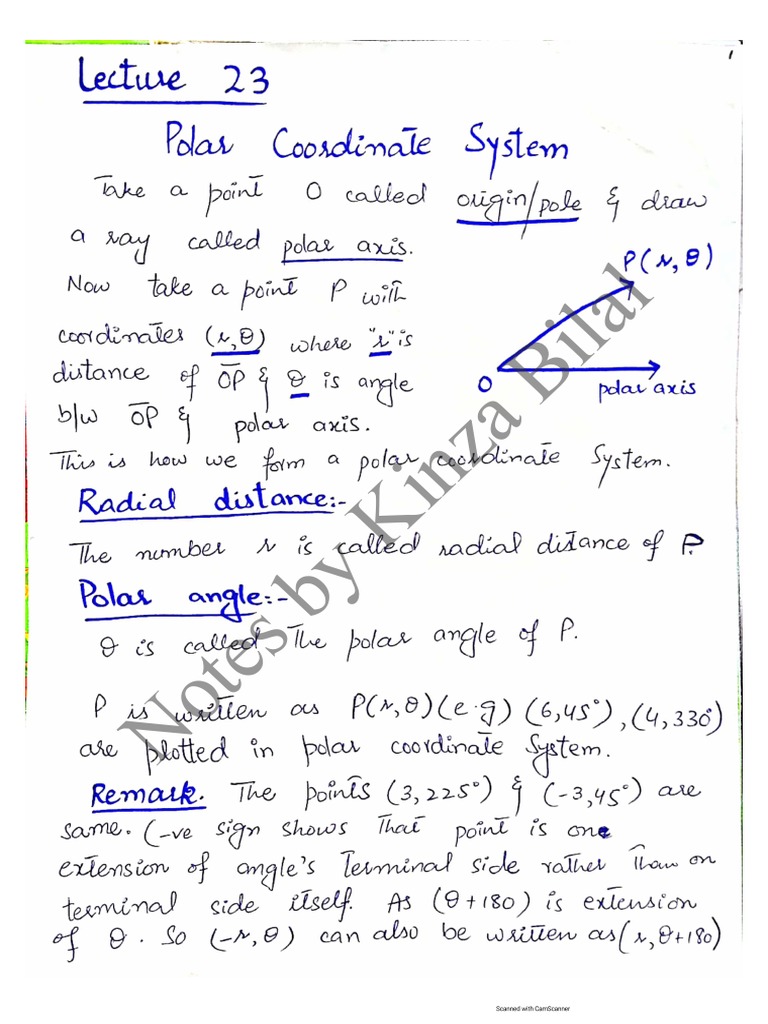 1
Lecture 23
Polar Coordinate System
Take a point O called origin/pole & draw
a ray called polar axis.
Now take a point P with
coordinates (r,θ) where "r" is
distance of OP & θ is angle
b/w OP & polar axis.
P(r,θ)
O
polar axis
This is how we form a polar coordinate System.
Radial distance:-
The number r is called radial distance of P.
Polar angle:-
θ is called The polar angle of P.
P is written as P(r,θ)(e.g) (6,45°),(4,330°)
are plotted in polar coordinate System.
Remark. The points (3,225°) & (-3,45°) are
same. (-ve sign shows That point is one
extension of angle's Terminal side rather Than on
terminal side itself. As (θ+180) is extension
of θ. So (-r,θ) can also be written as (r,θ+180)
Notes by Kinza Bilal
Scanned with CamScanner